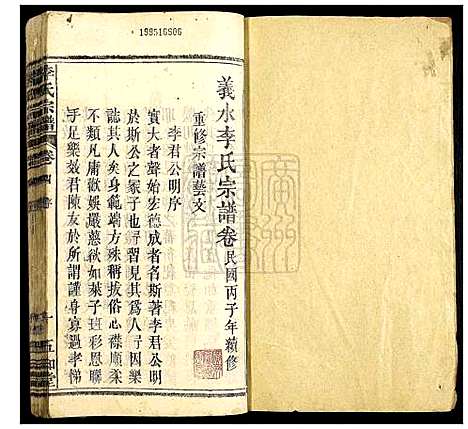 199516606
義水李氏宗譜卷 民國丙子年續修
重修宗譜藝文
李君公明序
實大者聲始宏德成者名斯著李君公明
於斯公之冢子也得習見其為人也而
誌其人矣身範端方殊稱拔俗心襟廉柔
不類凡庸歡娛嚴慈欲如萊子班彩恩聯
手足樂效君陳友於所謂謹身寡過孝悌
李氏宗譜 卷